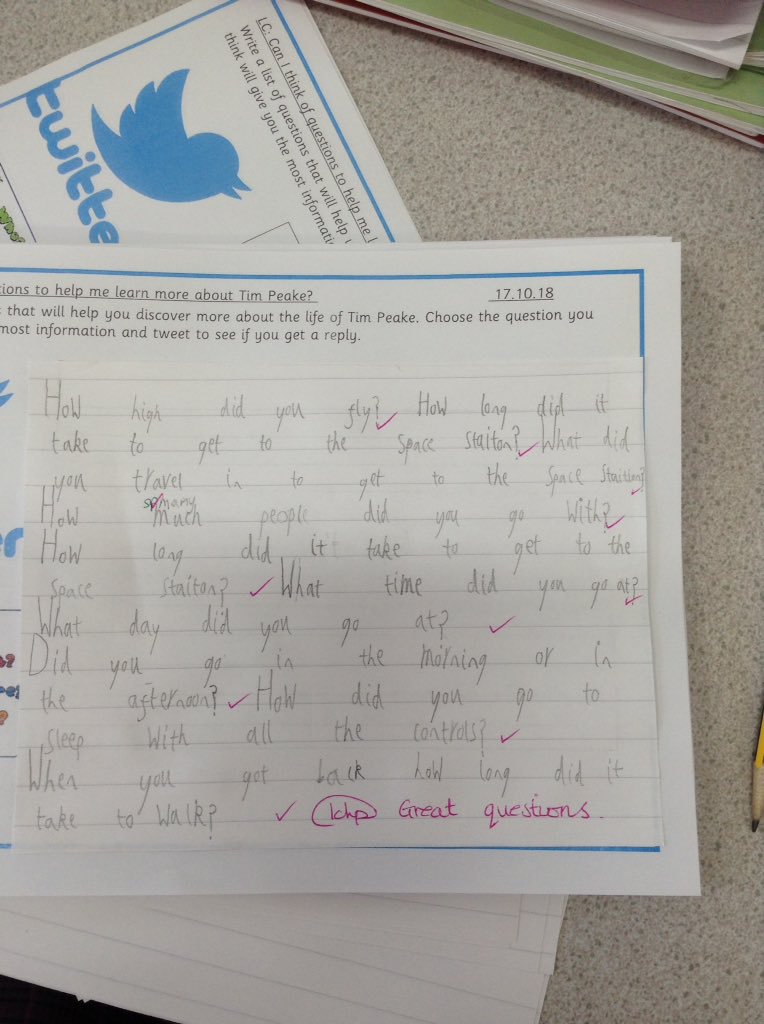 LC: Can I think of questions to help me l
Write a list of questions that will help
think will give you the most informati
twitte
ions to help me learn more about Tim Peake?
17.10.18
that will help you discover more about the life of Tim Peake. Choose the question you
most information and tweet to see if you get a reply.
How high did you fly? How long did it
take to get to the Space Staiton? What did
you travel in to get to the Space Staition?
many
How much people did you go With?
How long did it take to get to the
Space Staiton? What time did you go at?
What day did you go at?
Did you go in the morning or in
the afternoon? How did you go to
sleep With all the controls?
When you got back how long did it
take to Walk?
1chp Great questions.